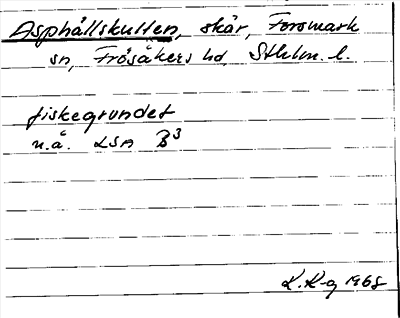 Asphällskullen, skär, Forsmark
sn, Frösåkers hd, Sthlm. l.
fiskegrundet
n.ä. LSA B3
K. K-g 1968